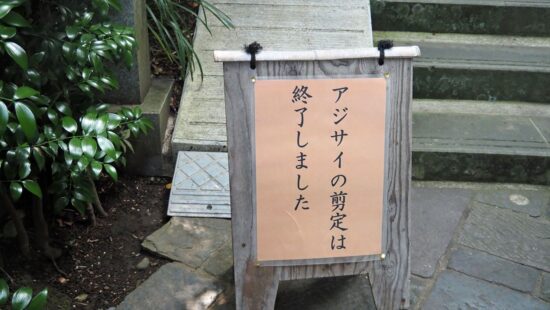 アジサイの剪定は
終了しました